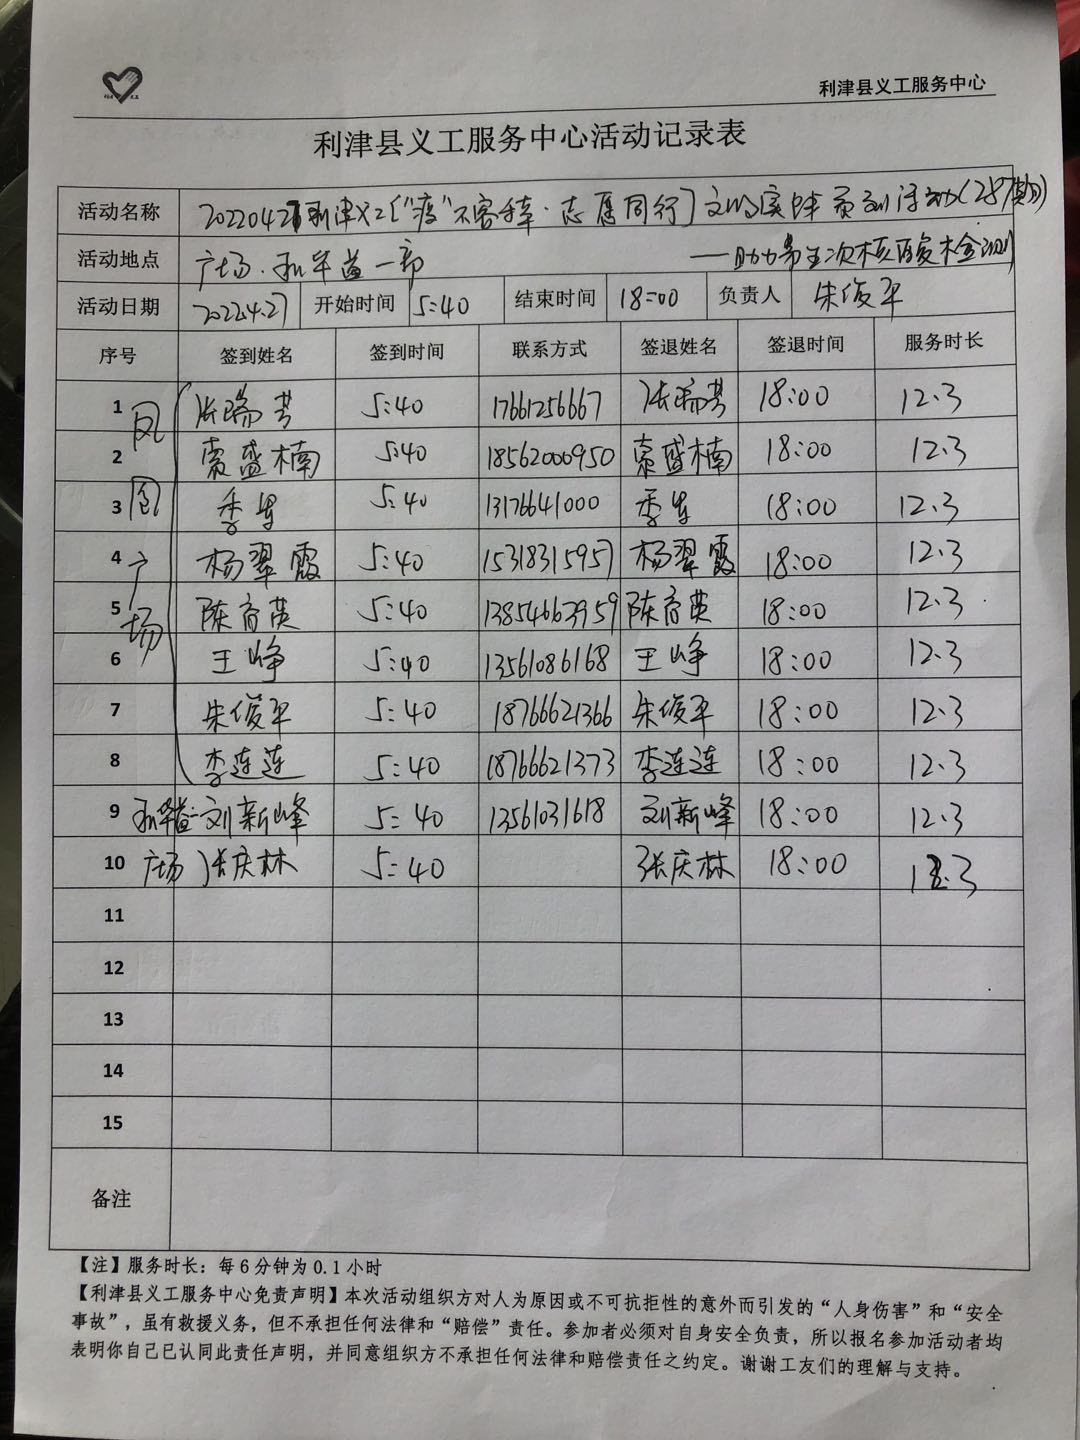 利津县义工服务中心
利津县义工服务中心活动记录表
活动名称 20220427利津义工["疫"不容辞·志愿同行]文明实践系列活动(287期)
活动地点 广场.和华益一部 ——助力第五次核酸检测
活动日期 2022.4.27 开始时间 5:40 结束时间 18:00 负责人 朱俊平
序号 签到姓名 签到时间 联系方式 签退姓名 签退时间 服务时长
凤凰广场
1 张瑞芳 5:40 17661256667 张瑞芳 18:00 12.3
2 索盛楠 5:40 18562000950 索盛楠 18:00 12.3
3 季 5:40 13176641000 季 18:00 12.3
4 杨翠霞 5:40 15318315957 杨翠霞 18:00 12.3
5 陈育英 5:40 13854663959 陈育英 18:00 12.3
6 王峥 5:40 13561086168 王峥 18:00 12.3
7 朱俊平 5:40 18766621366 朱俊平 18:00 12.3
8 李连莲 5:40 18766621373 李连莲 18:00 12.3
9 和华益 刘新峰 5:40 13561031618 刘新峰 18:00 12.3
10 广场 张庆林 5:40 张庆林 18:00 12.3
11
12
13
14
15
备注
【注】服务时长：每6分钟为0.1小时
【利津县义工服务中心免责声明】本次活动组织方对人为原因或不可抗拒性的意外而引发的“人身伤害”和“安全
事故”，虽有救援义务，但不承担任何法律和“赔偿”责任。参加者必须对自身安全负责，所以报名参加活动者均
表明你自己已认同此责任声明，并同意组织方不承担任何法律和赔偿责任之约定。谢谢工友们的理解与支持。